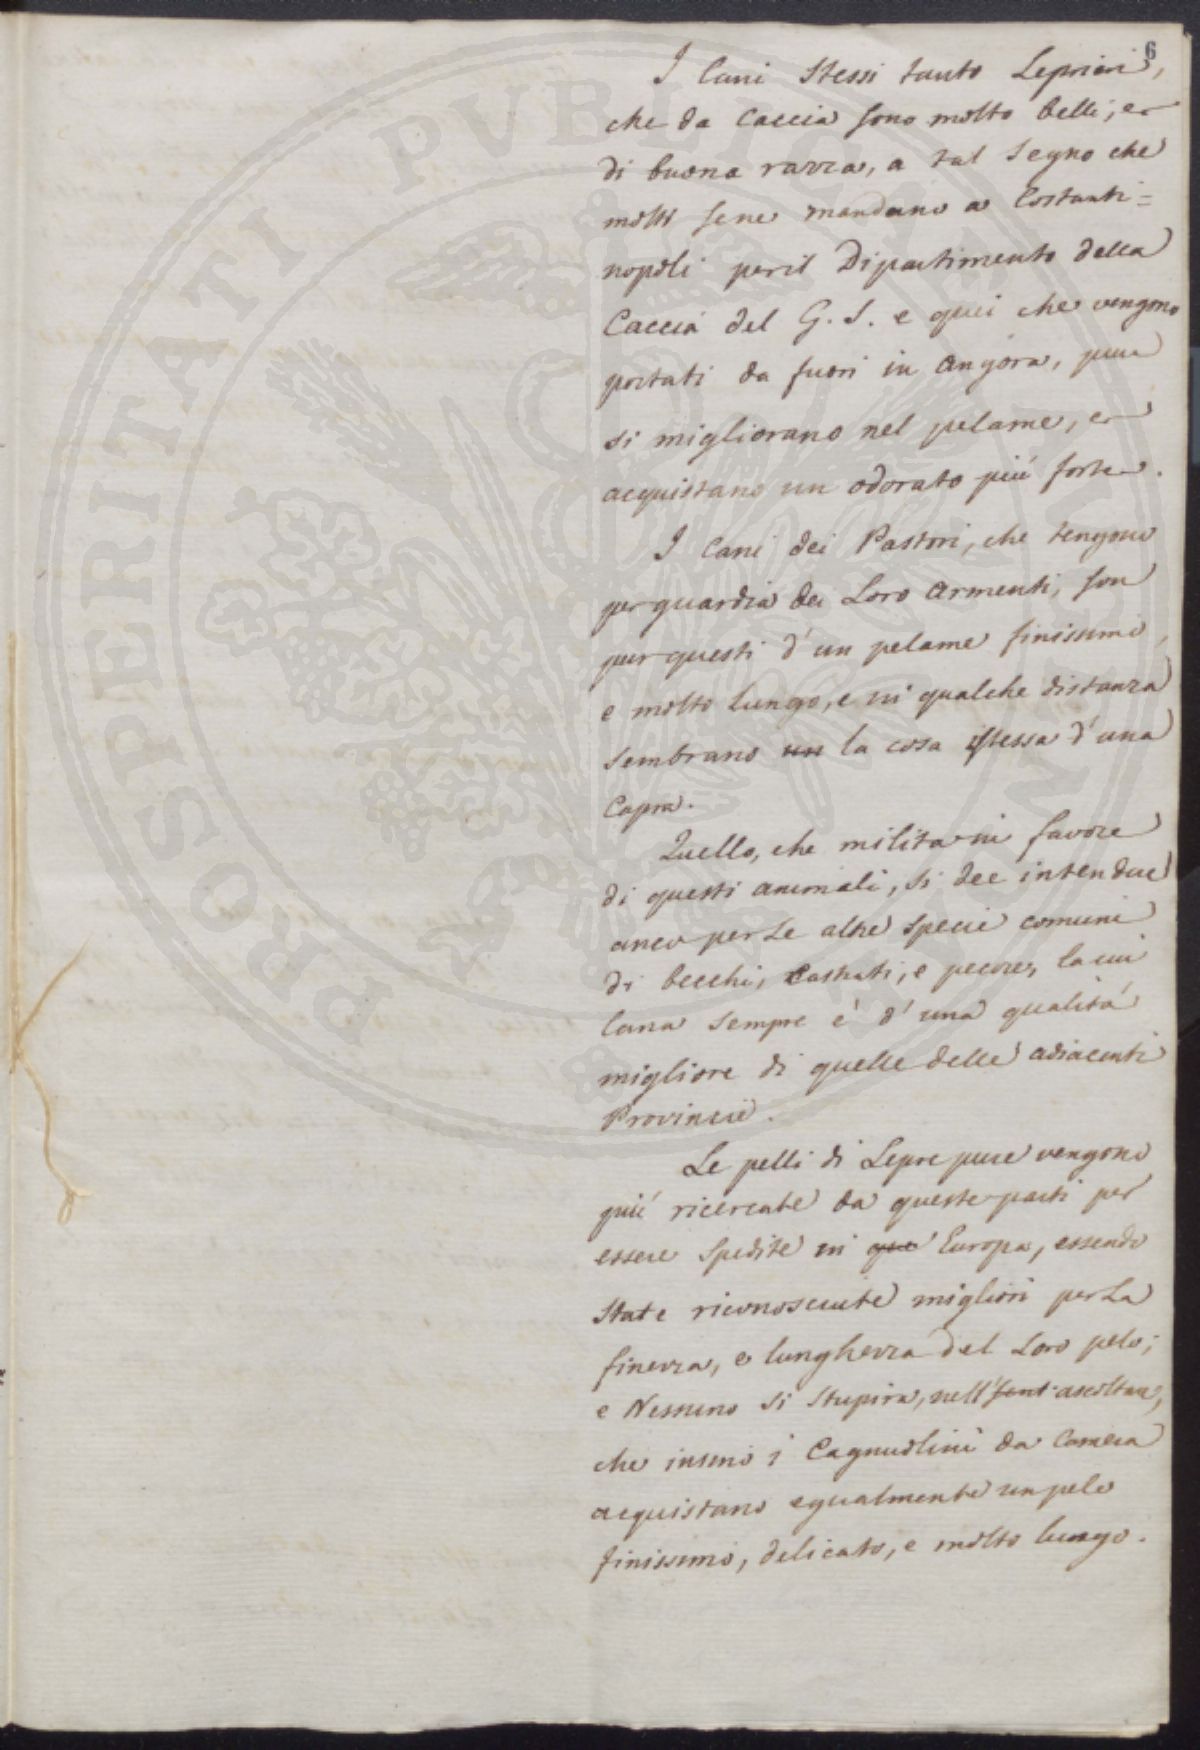 6
I Cani stessi tanto Leprieri,
che da Caccia sono molto belli, et
di buona razza, a tal segno che
molti sene mandano a Costanti=
nopoli peril Dipartimento della
Caccia del G. S. e quei che vengono
portati da fuori in Angora, pure
si migliorano nel pelame, et
acquistano un odorato più forte.
I Cani dei Pastori, che tengono
per guardia dei Loro Armenti, son
pur questi d'un pelame finissimo,
e molto lungo, e in qualche distanza
sembrano un la cosa istessa d'una
Capra.
Quello, che milita in favore
di questi animali, si dee intendere
anco per Le altre specie comuni
di becchi, Castrati, e pecore, la cui
lana sempre è d'una qualità
migliore di quelle delle adiacenti
Provincie.
Le pelli di Lepre pure vengono
più ricercate da queste parti per
essere spedite in que Europa, essendo
state riconosciute migliori per La
finezza, e lunghezza del Loro pelo;
e Nessuno si stupira, nell' sent ascoltare,
che insino i Cagnuolini da Camera
acquistano egualmente un pelo
finissimo, delicato, e molto lungo.
PROSPERITATI PVBLICAE